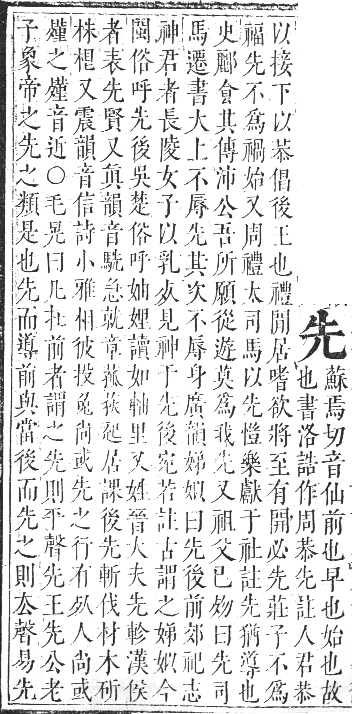 先 蘇焉切音仙前也早也始也故
也書洛誥作周恭先註人君恭
以接下以恭倡後王也禮閒居嗜欲將至有開必先莊子不爲
福先不爲禍始又周禮大司馬以先愷樂獻于社註先猶導也
史酈會其傳沛公吾所願從遊莫爲我先又祖父已歾曰先司
馬遷書大上不辱先其次不辱身廣韻娣姒曰先後前郊祀志
神君者長陵女子以乳死見神于先後宛若註古謂之娣姒今
閩俗呼先後吳楚俗呼妯娌讀如軸里又姓晉大夫先軫漢侯
者表先賢又眞韻音駪急就章菰荻起居課後先斬伐材木斫
株梱又震韻音信詩小雅相彼投兔尚或先之行有死人尚或
墐之墐音近○毛晃曰凡在前者謂之先則平聲先王先公老
子象帝之先之類是也先而導前與當後而先之則去聲易先